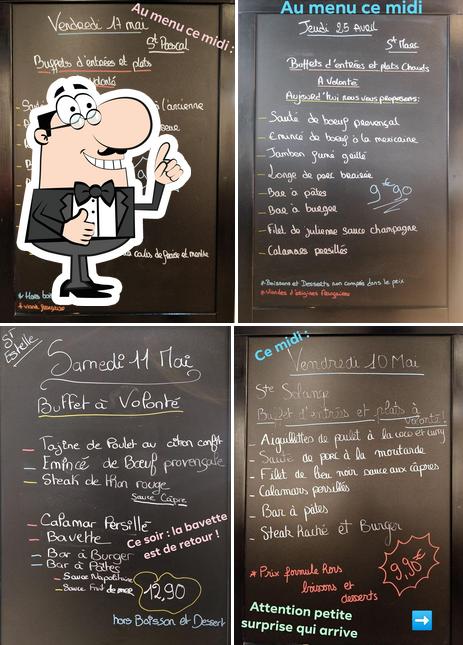 Au menu ce midi :
Vendredi 17 mai
St Pascal
Buffets d'entrées et plats
volonté
l'ancienne
coulis de fraise et menthe
Au menu ce midi
Jeudi 25 Avril
St Marc
Buffets d'entrées et plats chauds
A Volonté
Aujourd'hui nous vous proposons :
- Sauté de boeuf provençal
- Emincé de boeuf à la mexicaine
- Jambon fumé grillé
- Longe de porc braisée
- Bar à pâtes
9€90
- Bar à burger
- Filet de julienne sauce champagne
- Calamars persillés
*Boissons et Desserts non compris dans le prix
*Viandes d'origines françaises
St Estelle
Samedi 11 Mai
Buffet à Volonté
- Tajine de Poulet au citron confit
- Emincé de Bœuf provençale
- Steak de thon rouge
Sauce Câpre
- Calamar Persillé
- Bavette
Ce soir : la bavette
est de retour !
- Bar à Burger
- Bar à Pâtes
- Sauce Napolitaine
- Sauce Fruit de mer
12,90
hors Boisson et Dessert
Ce midi :
Vendredi 10 Mai
Ste Solange
Buffet d'entrées et plats à
volonté !
- Aiguillettes de poulet à la coco et curry
- Sauté de porc à la moutarde
- Filet de lieu noir sauce aux câpres
- Calamars persillés
- Bar à pâtes
- Steak haché et Burger
9,90€
* Prix formule hors
boissons et
desserts
Attention petite
surprise qui arrive